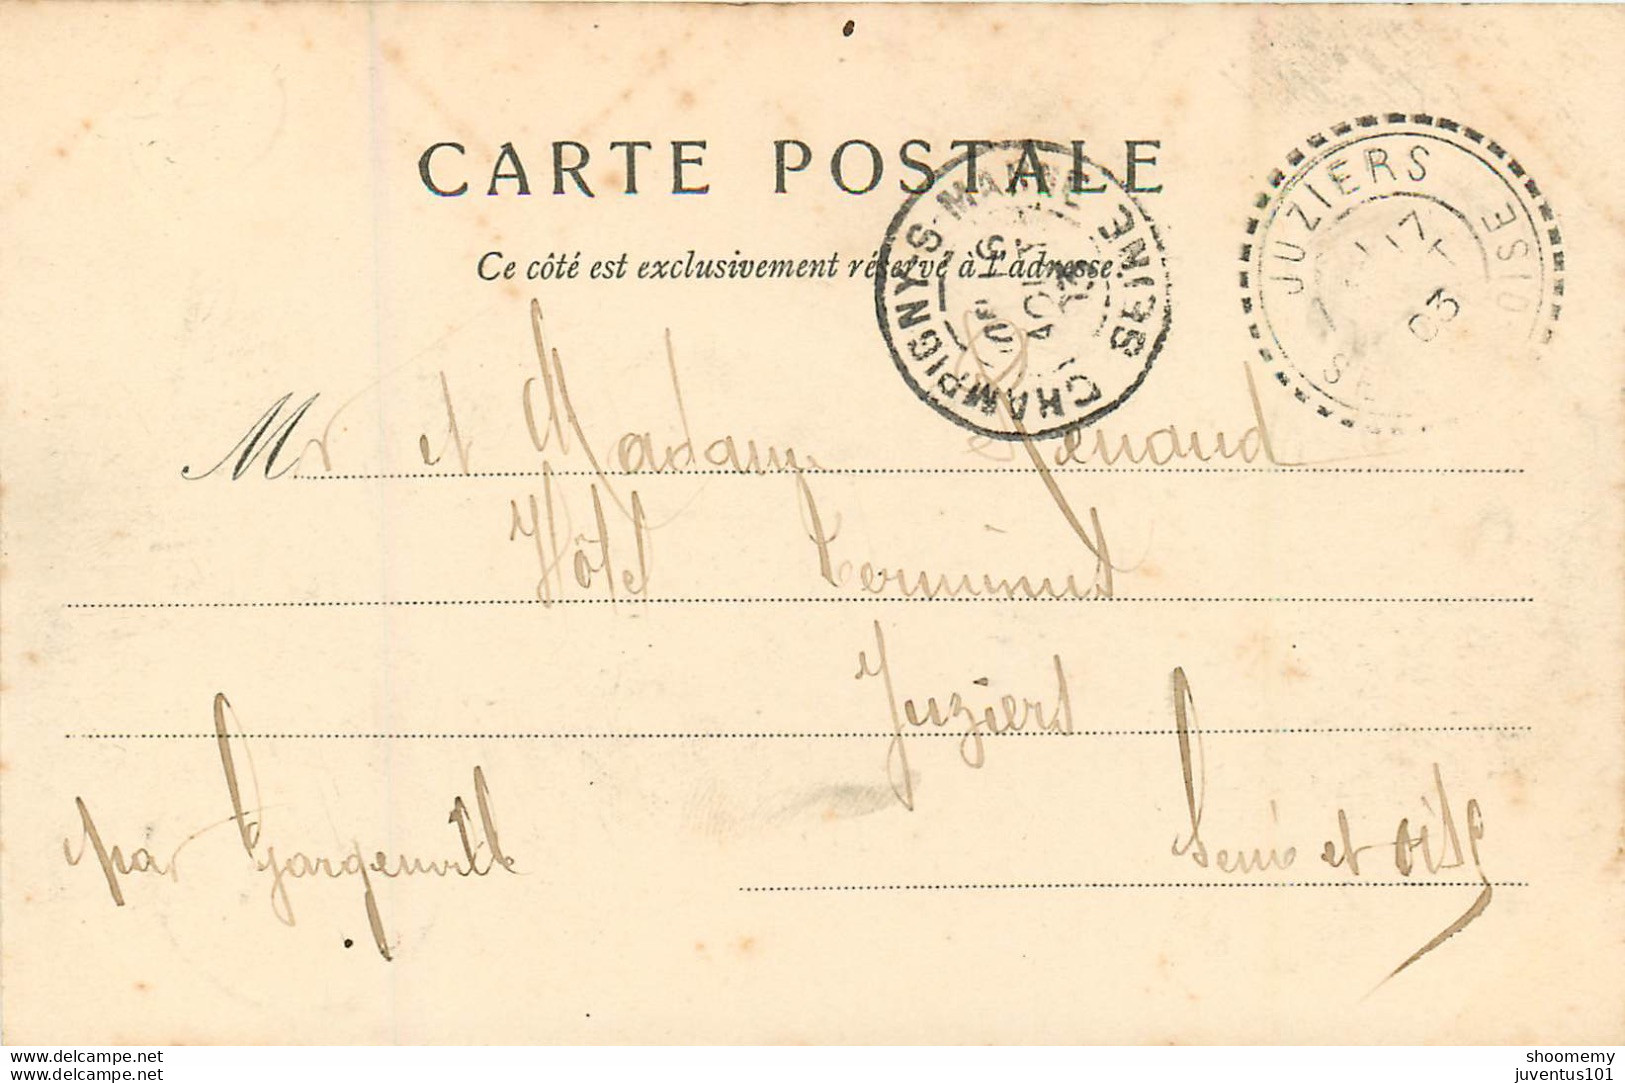 CARTE POSTALE
Ce côté est exclusivement réservé à l'adresse.
CHAMPIGNY-S-MARNE SEINE
JUZIERS
OISE
03
Mr et Madame Renaud
Hôtel Terminus
Juziers
par Gargenville
Seine et oise
www.delcampe.net
www.delcampe.net
shoomemy
juventus101